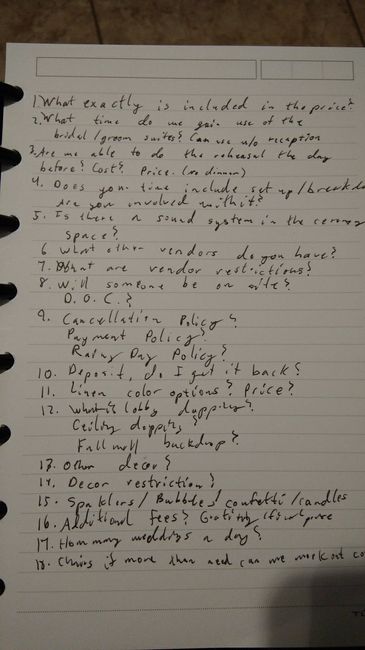 1. What exactly is included in the price?
2. What time do we gain use of the
bridal/groom suites? Can use w/o reception
3. Are we able to do the rehersal the day
before? Cost? Price. (no dinner)
4. Does your time include set up/breakdo
Are you involved with it?
5. Is there a sound system in the ceremony
Space?
6. What other vendors do you have?
7. What are vendor restrictions?
8. Will someone be on site?
D.O.C.?
9. Cancellation Policy?
Payment Policy?
Rainy Day Policy?
10. Deposit, do I get it back?
11. Linen color options? Price?
12. What is lobby
Ceiling
Full wall backdrop?
13. Other decor?
14. Decor restriction?
15. Sparklers/Bubbles/confetti/candles
16. Additional Fees? price
17. How many weddings a day?
18. Chairs if more than need can we work out co